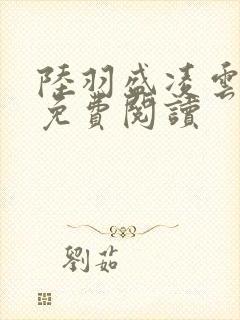 陸羽盛凌雲
免費閱讀
劉茹